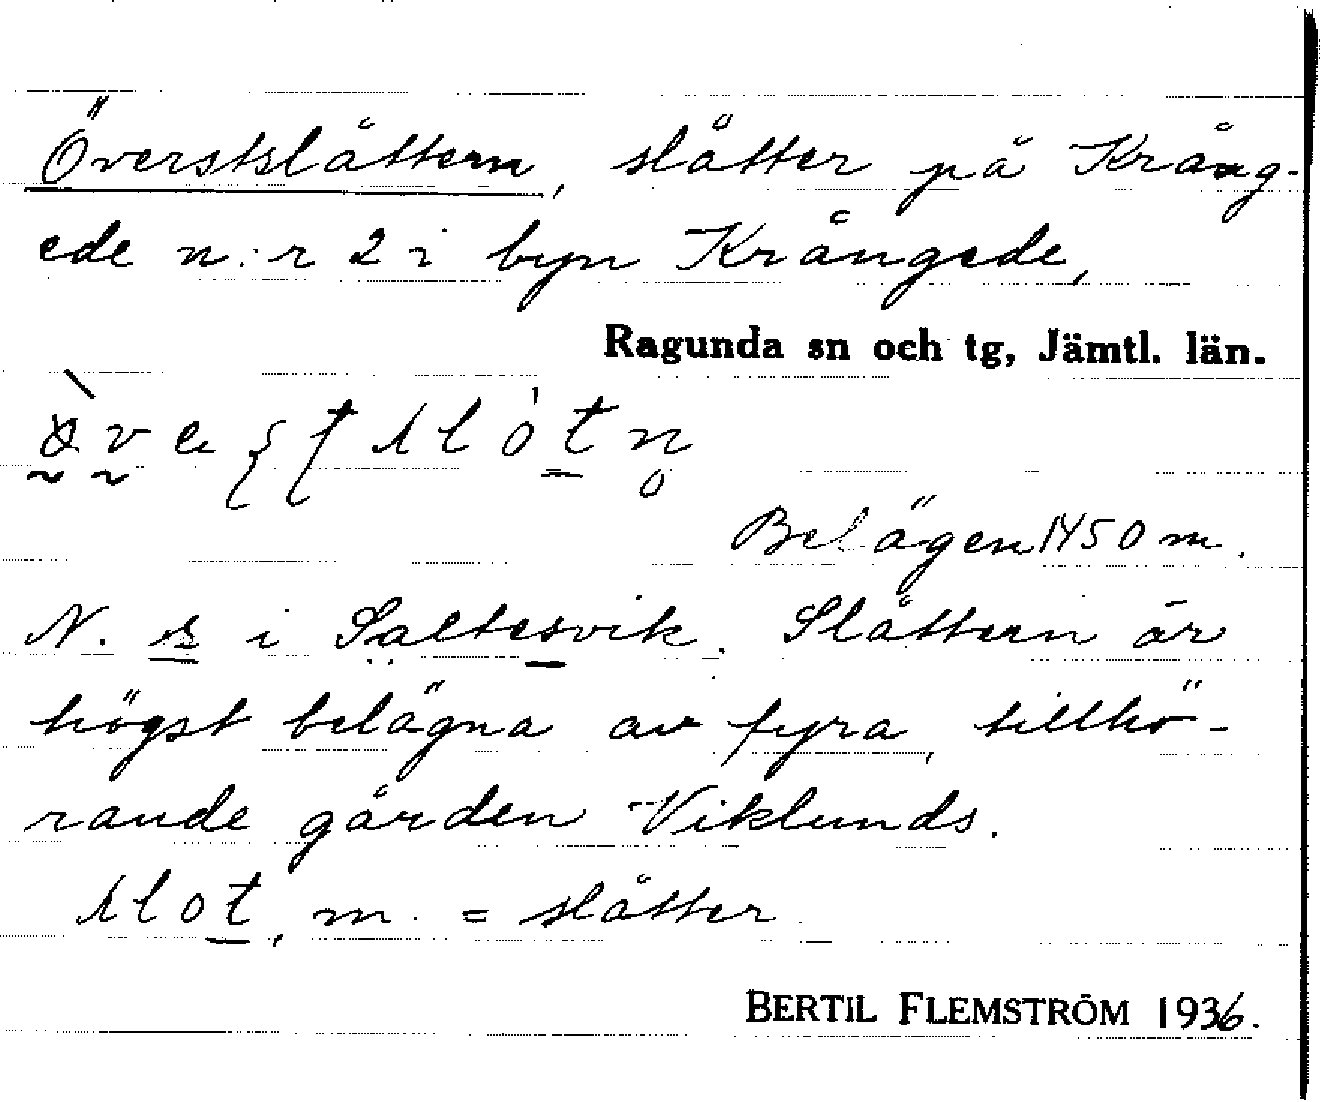 Överstslåttern, slåtter på Krång-
ede n:r 2 i byn Krångede,
Ragunda sn och tg, Jämtl. län.
Belägen 1450 m.
N. s i Saltesvik. Slåttern är
högst belägna av fyra, tillhö-
rande gården Viklunds.
slot, m. = slåtter
BERTIL FLEMSTRÖM 1936.